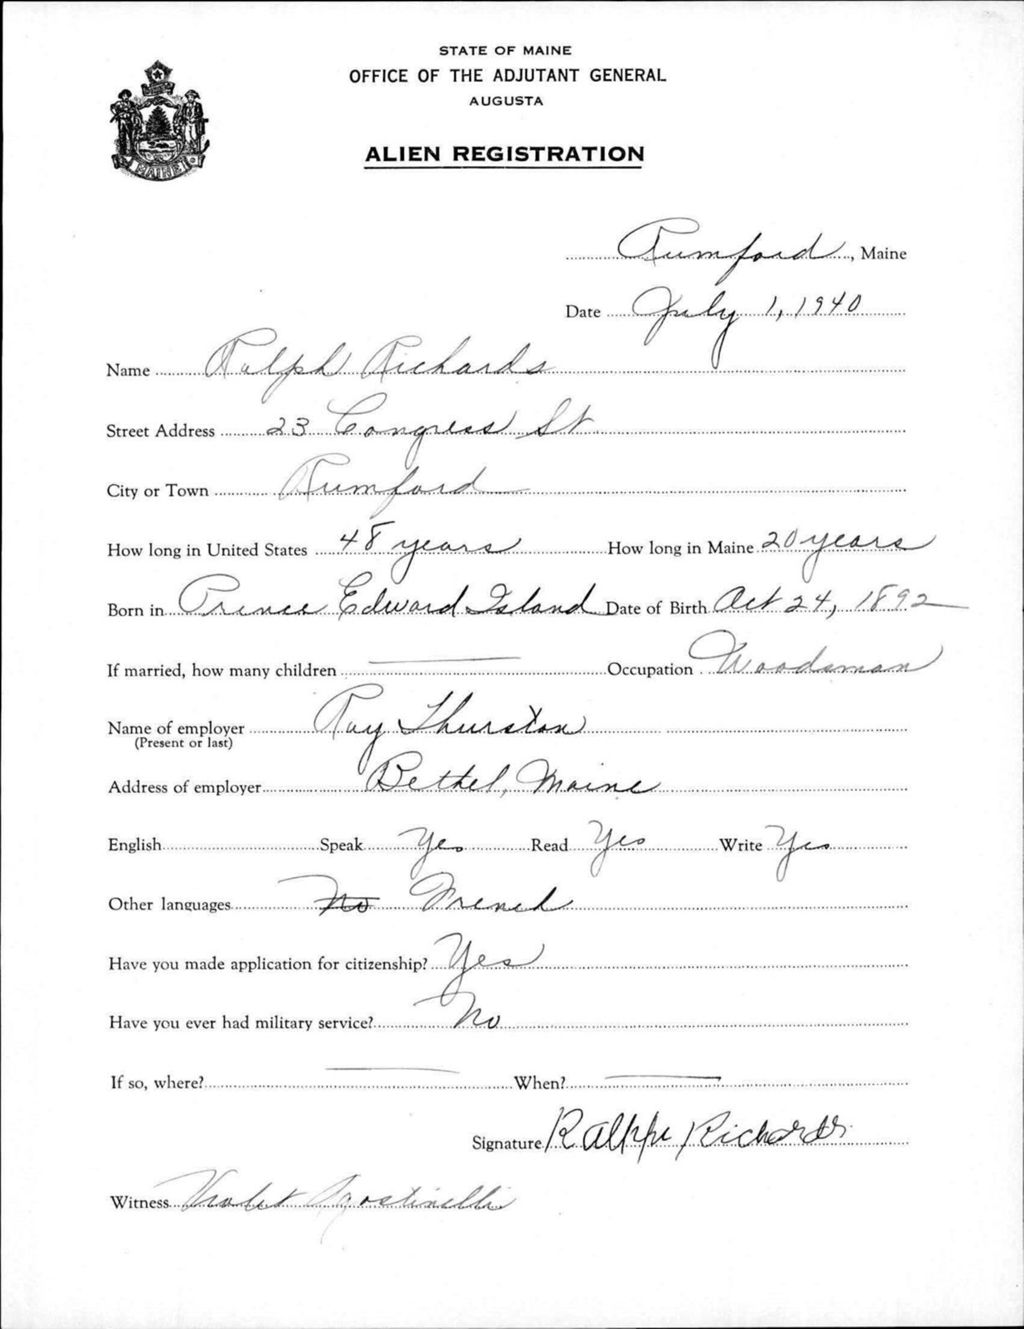 STATE OF MAINE
OFFICE OF THE ADJUTANT GENERAL
AUGUSTA
ALIEN REGISTRATION
MAINE
Rumford, Maine
Date July 1, 1940
Name Ralph Richards
Street Address 23 Congress St
City or Town Rumford
How long in United States 48 years How long in Maine 20 years
Born in Prince Edward Island Date of Birth Oct 24, 1892
If married, how many children — Occupation Woodsman
Name of employer Ray Thurston
(Present or last)
Address of employer Bethel, Maine
English Speak Yes Read Yes Write Yes
Other languages No French
Have you made application for citizenship? Yes
Have you ever had military service? No
If so, where? — When? —
Signature Ralph Richards
Witness Violet Agostinelli